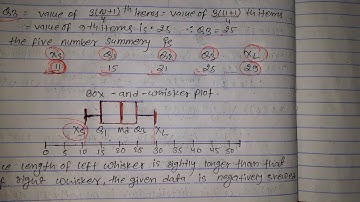 Q3 = value of 3(N+1)/4 th items = value of 3(11+1)/4 th items
= value of 9th items is = 25 ∴ Q3 = 25
the five number summery is
Xs Q1 Q2 Q3 XL
11 15 21 25 29
Box-and-whisker plot.
Xs Q1 Md Q3 XL
0 5 10 15 20 25 30 35 40 45 50
ce length of left whisker is sightly longer than that
of right whisker, the given data is negatively